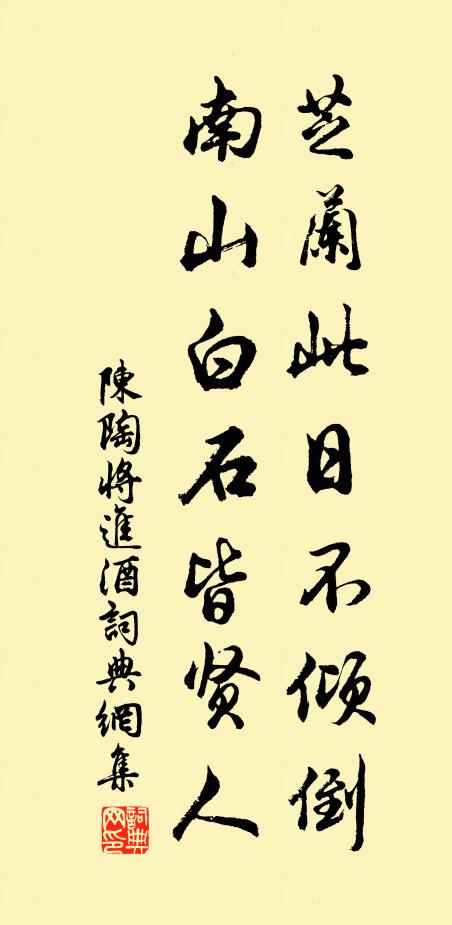 芝蘭此日不傾倒
南山白石皆贤人
陳陶將進酒詞典網集
詞典网印